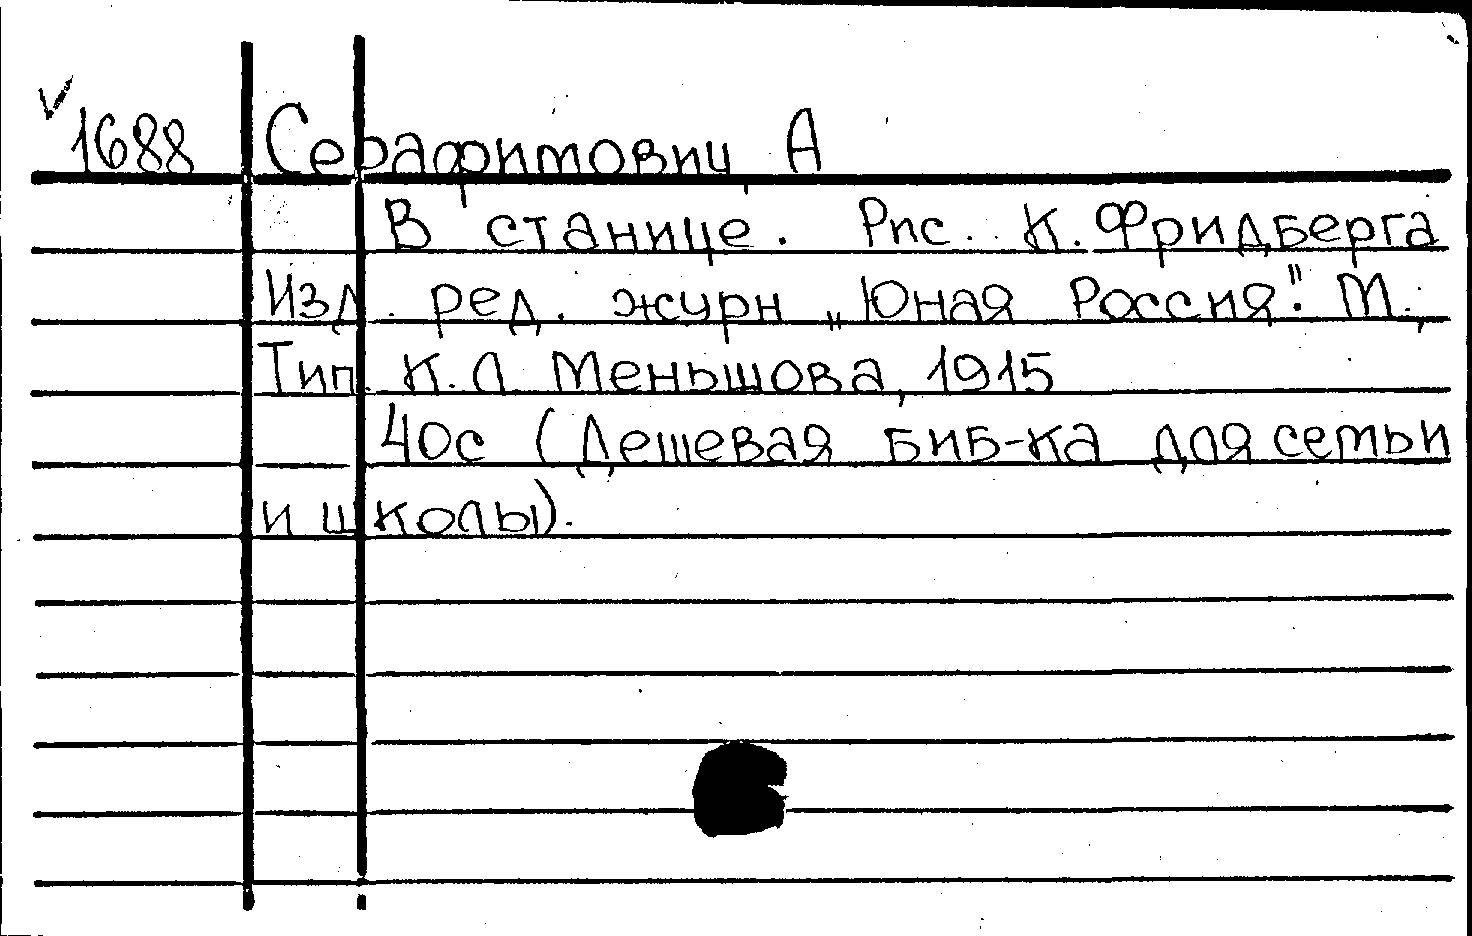 √ 1688 Серафимович А
В станице. Рис. К. Фридберга
Изд. ред. журн „Юная Россия". М.,
Тип. К.Л Меньшова, 1915
40с (Дешевая биб-ка для семьи
и школы).